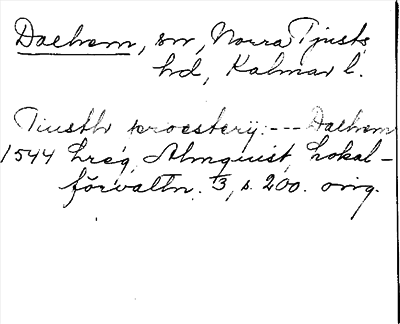 Dalhem, sn, Norra Tjusts
hd, Kalmar l.
Tiusth proesterij: --- Dalhem
1544 hreg. Almquist, Lokal-
förvaltn. 3, s. 200. orig.